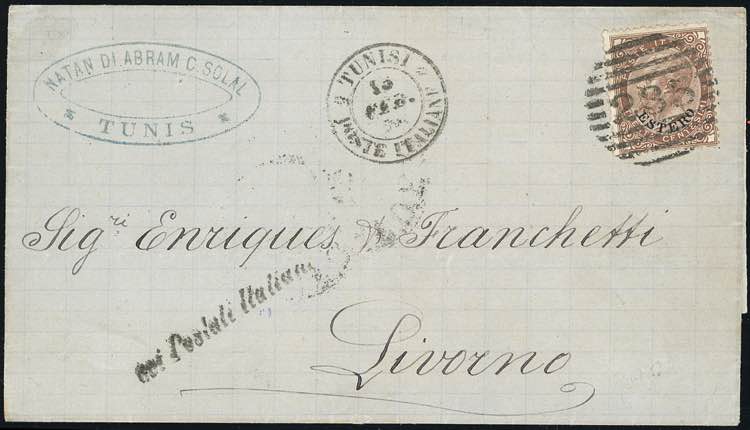 NATAN DI ABRAM C. SOLAL
TUNIS
TUNISI
15
FEB.
POSTE ITALIANE
ESTERO
Sigri Enriques & Franchetti
coi Postali Italiani
Livorno